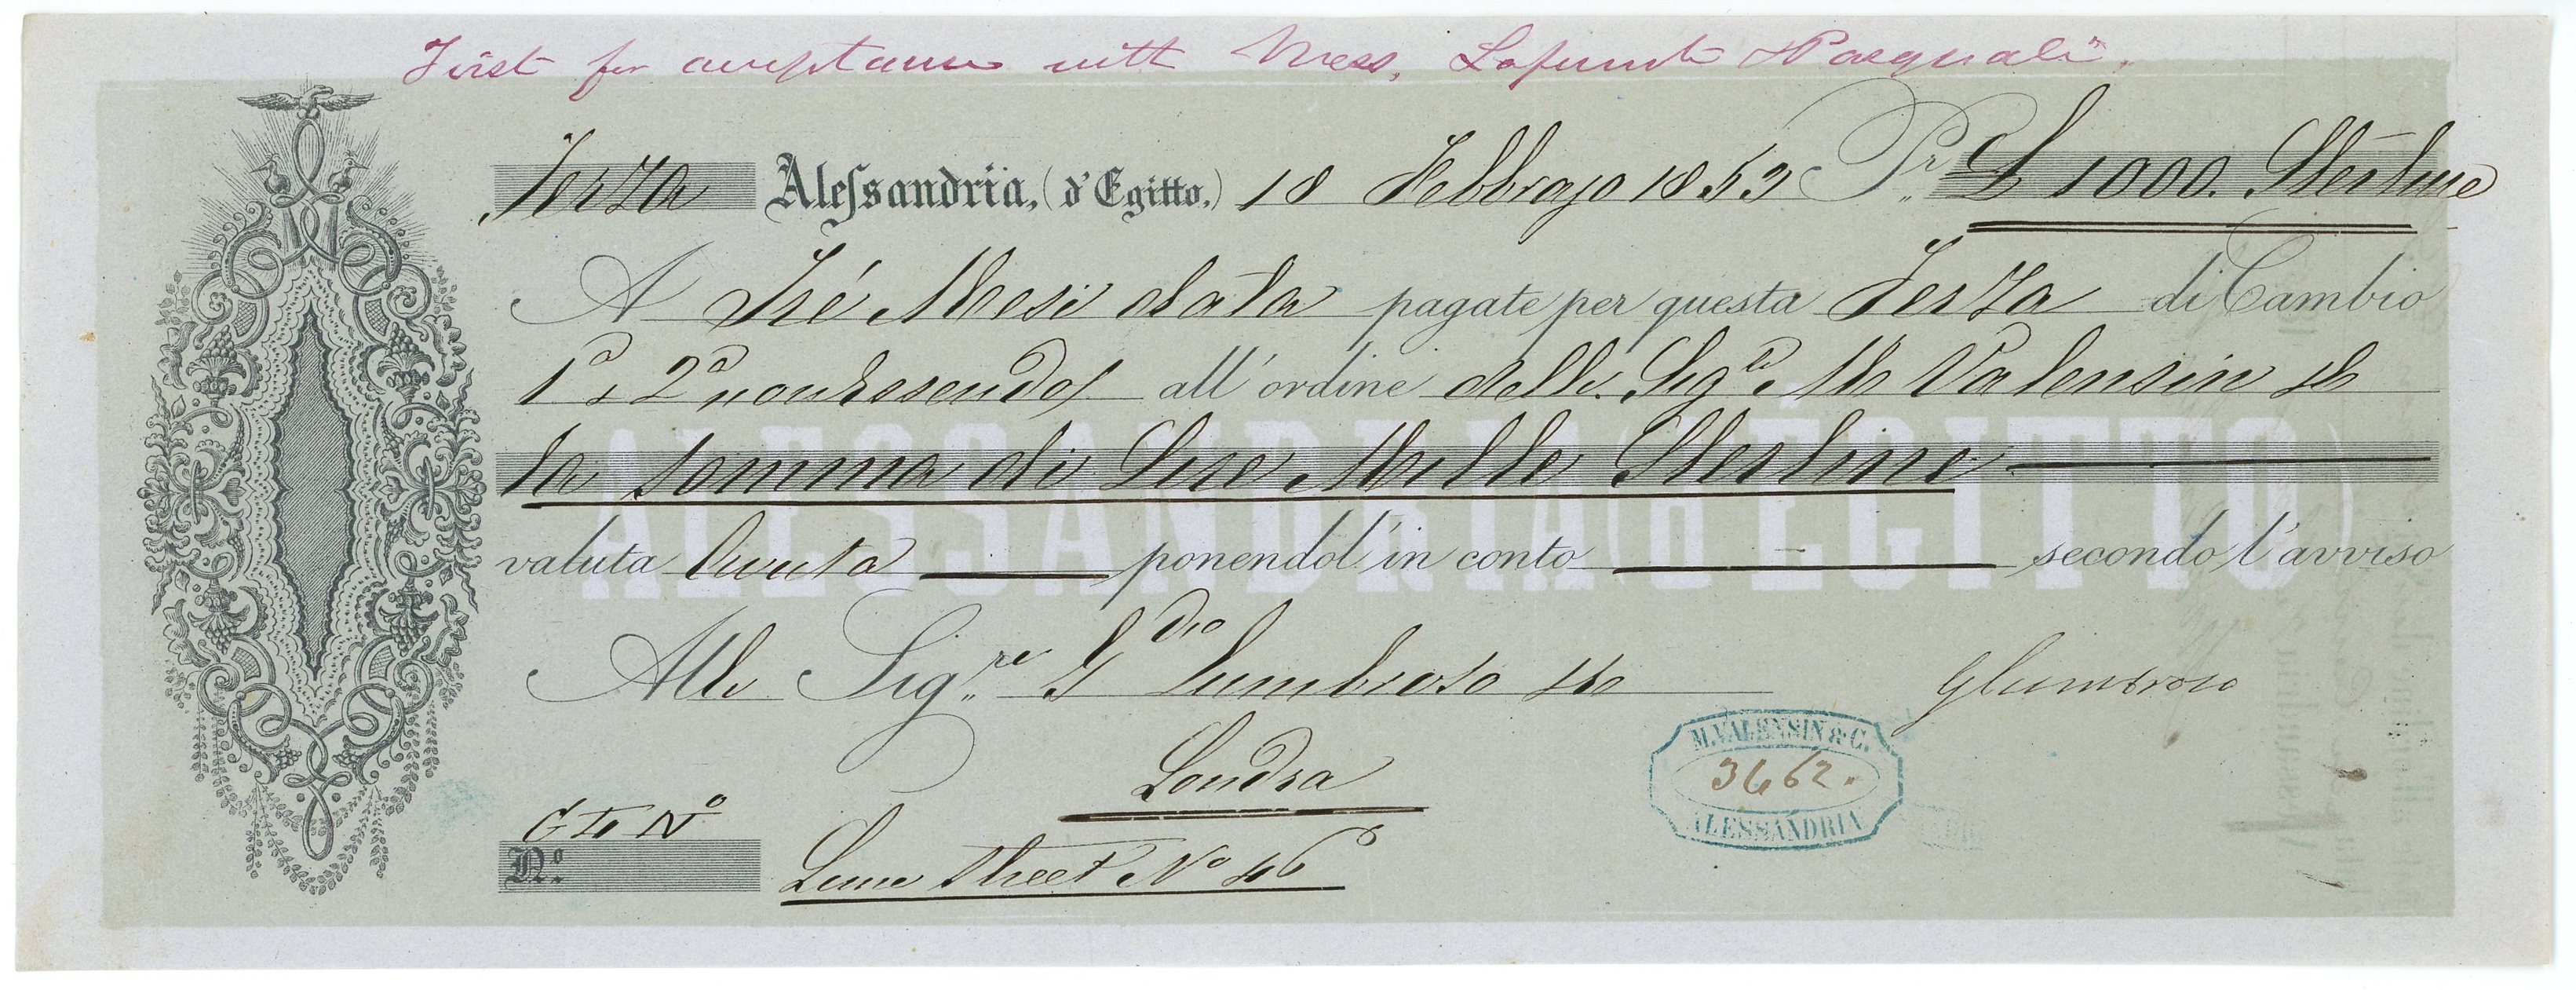 First for acceptance with Mess. Pasquali
Terza Alessandria, (d'Egitto,) 18 Febbrajo 1853 Pr. £ 1000. Sterline
A Tré Mesi data pagate per questa Terza di Cambio
1a, 2a non essendo all' ordine delli Sigri M Valensin & C
la somma di Lire Mille Sterline
valuta avuta ponendol' in conto secondo l'avviso
Alli Sigri. G Lumbroso & C
GLumbroso
Londra
M. VALENSIN & C.
3662.
ALESSANDRIA
No.
Lime Street No 46
ALESSANDRIA (D'ÉGITTO)